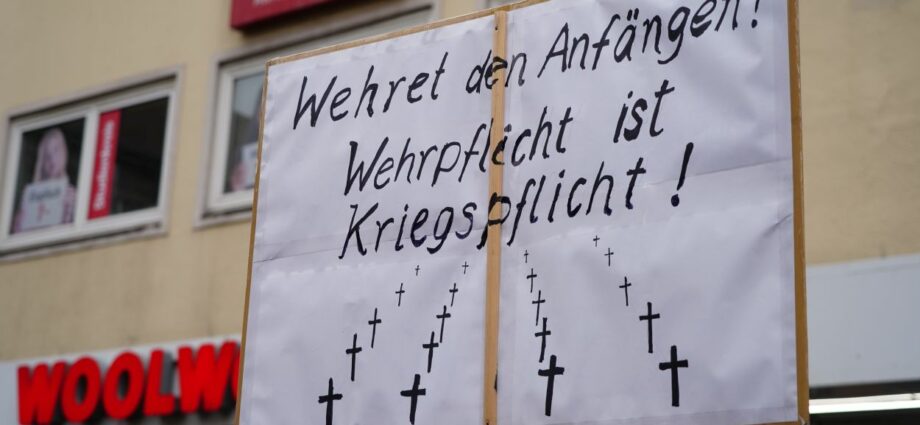 Wehret den Anfängen!
Wehrpflicht ist
Kriegspflicht!
WOOLW